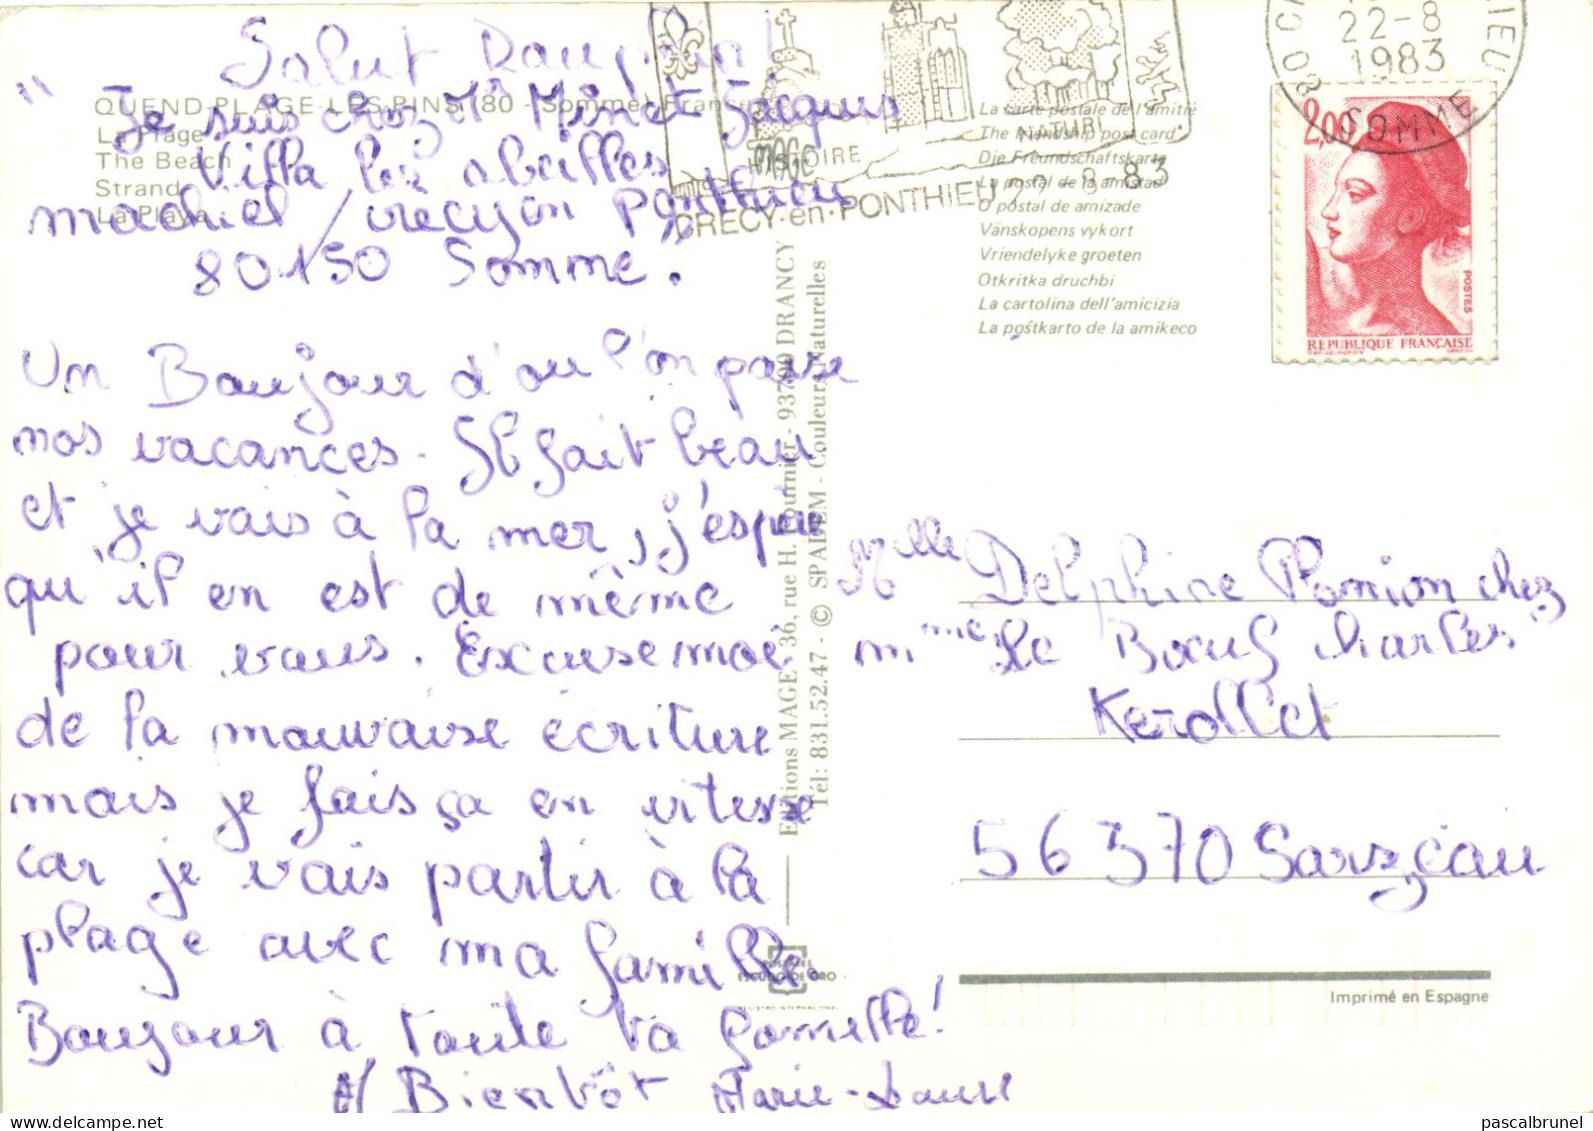 Salut
QUEND-PLAGE-LES-PINS (80 - Somme) France
La Plage
The Beach
Strand
La Playa
" Je suis chez Mr Minet Jacques
Villa les abeilles
machiel / crecy en Ponthieu
80150 Somme. "
Un Boujour d'ou l'on passe
nos vacances. Il fait beau
et je vais à la mer, j'espère
qu'il en est de même
pour vous. Excuse moi
de la mauvaise écriture
mais je fais ça en vitesse
car je vais partir à la
plage avec ma famille.
Boujour à toute ta famille!
A/ Bientôt Marie-Laure
HISTOIRE
NATURE
CRECY-en-PONTHIEU 22-8-83
22-8
1983
80 SOMME
La carte postale de l'amitié
The friendship post card
Die Freundschaftskarte
La postal de la amistad
O postal de amizade
Vänskopens vykort
Vriendelyke groeten
Otkritka druchbi
La cartolina dell'amicizia
La poŝtkarto de la amikeco
2,00
POSTES
REPUBLIQUE FRANÇAISE
Editions MAGE - 36, rue H. Fournier - 93700 DRANCY
Tél: 831.52.47 - © SPADEM - Couleurs Naturelles
MAGE
Melle Delphine Plomion chez
mme Le Boeuf charles
Kerollet
56370 Sarzeau
ESCUDO DE ORO
Imprimé en Espagne
pascalbrunel